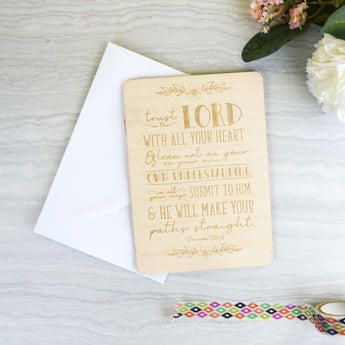 trust
in the LORD
WITH ALL YOUR HEART
& lean not on your
on your own &
OWN UNDERSTANDING
in all your ways SUBMIT TO HIM,
& HE WILL MAKE YOUR
paths straight.
Proverbs 3:5-6